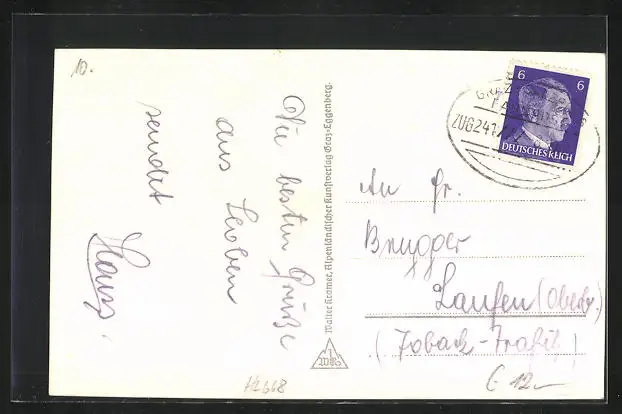 10.
Die besten Grüße
aus Leoben
sendet
Hans.
Walter Kramer, Alpenländischer Kunstverlag Graz-Eggenberg.
6 6
DEUTSCHES REICH
GRAZ
ZUG 241
An Fr.
Brugger
Laufen (Oberb.)
(Tabak-Trafik)
€ 12.-